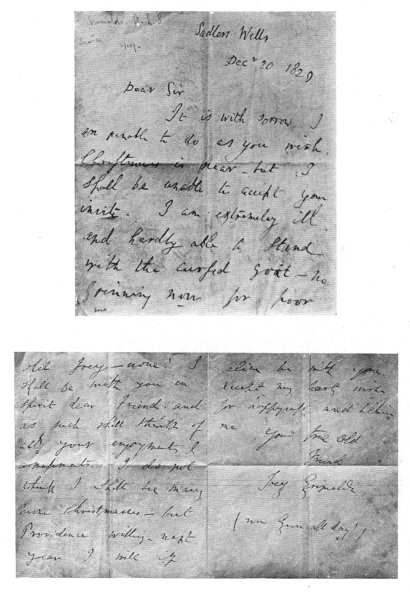 Sadlers Wells
Decr 20 1829
Dear Sir
It is with sorrow I
am unable to do as you wish.
Christmas is near - but I
shall be unable to accept your
invite. I am extremely ill
and hardly able to stand
with the cursed Gout - no
grinning now for poor
old Joey - none! I
shall be with you in
spirit dear friend and
as such shall think of
all your enjoyments &
amusements. I do not
think I shall see many
more Christmasses - but
Providence willing - next
year I will if
alive be with you
accept my hearty wishes
for happyness and
me
Your true old
Friend
Joey Grimaldi
(now Grim all day!)